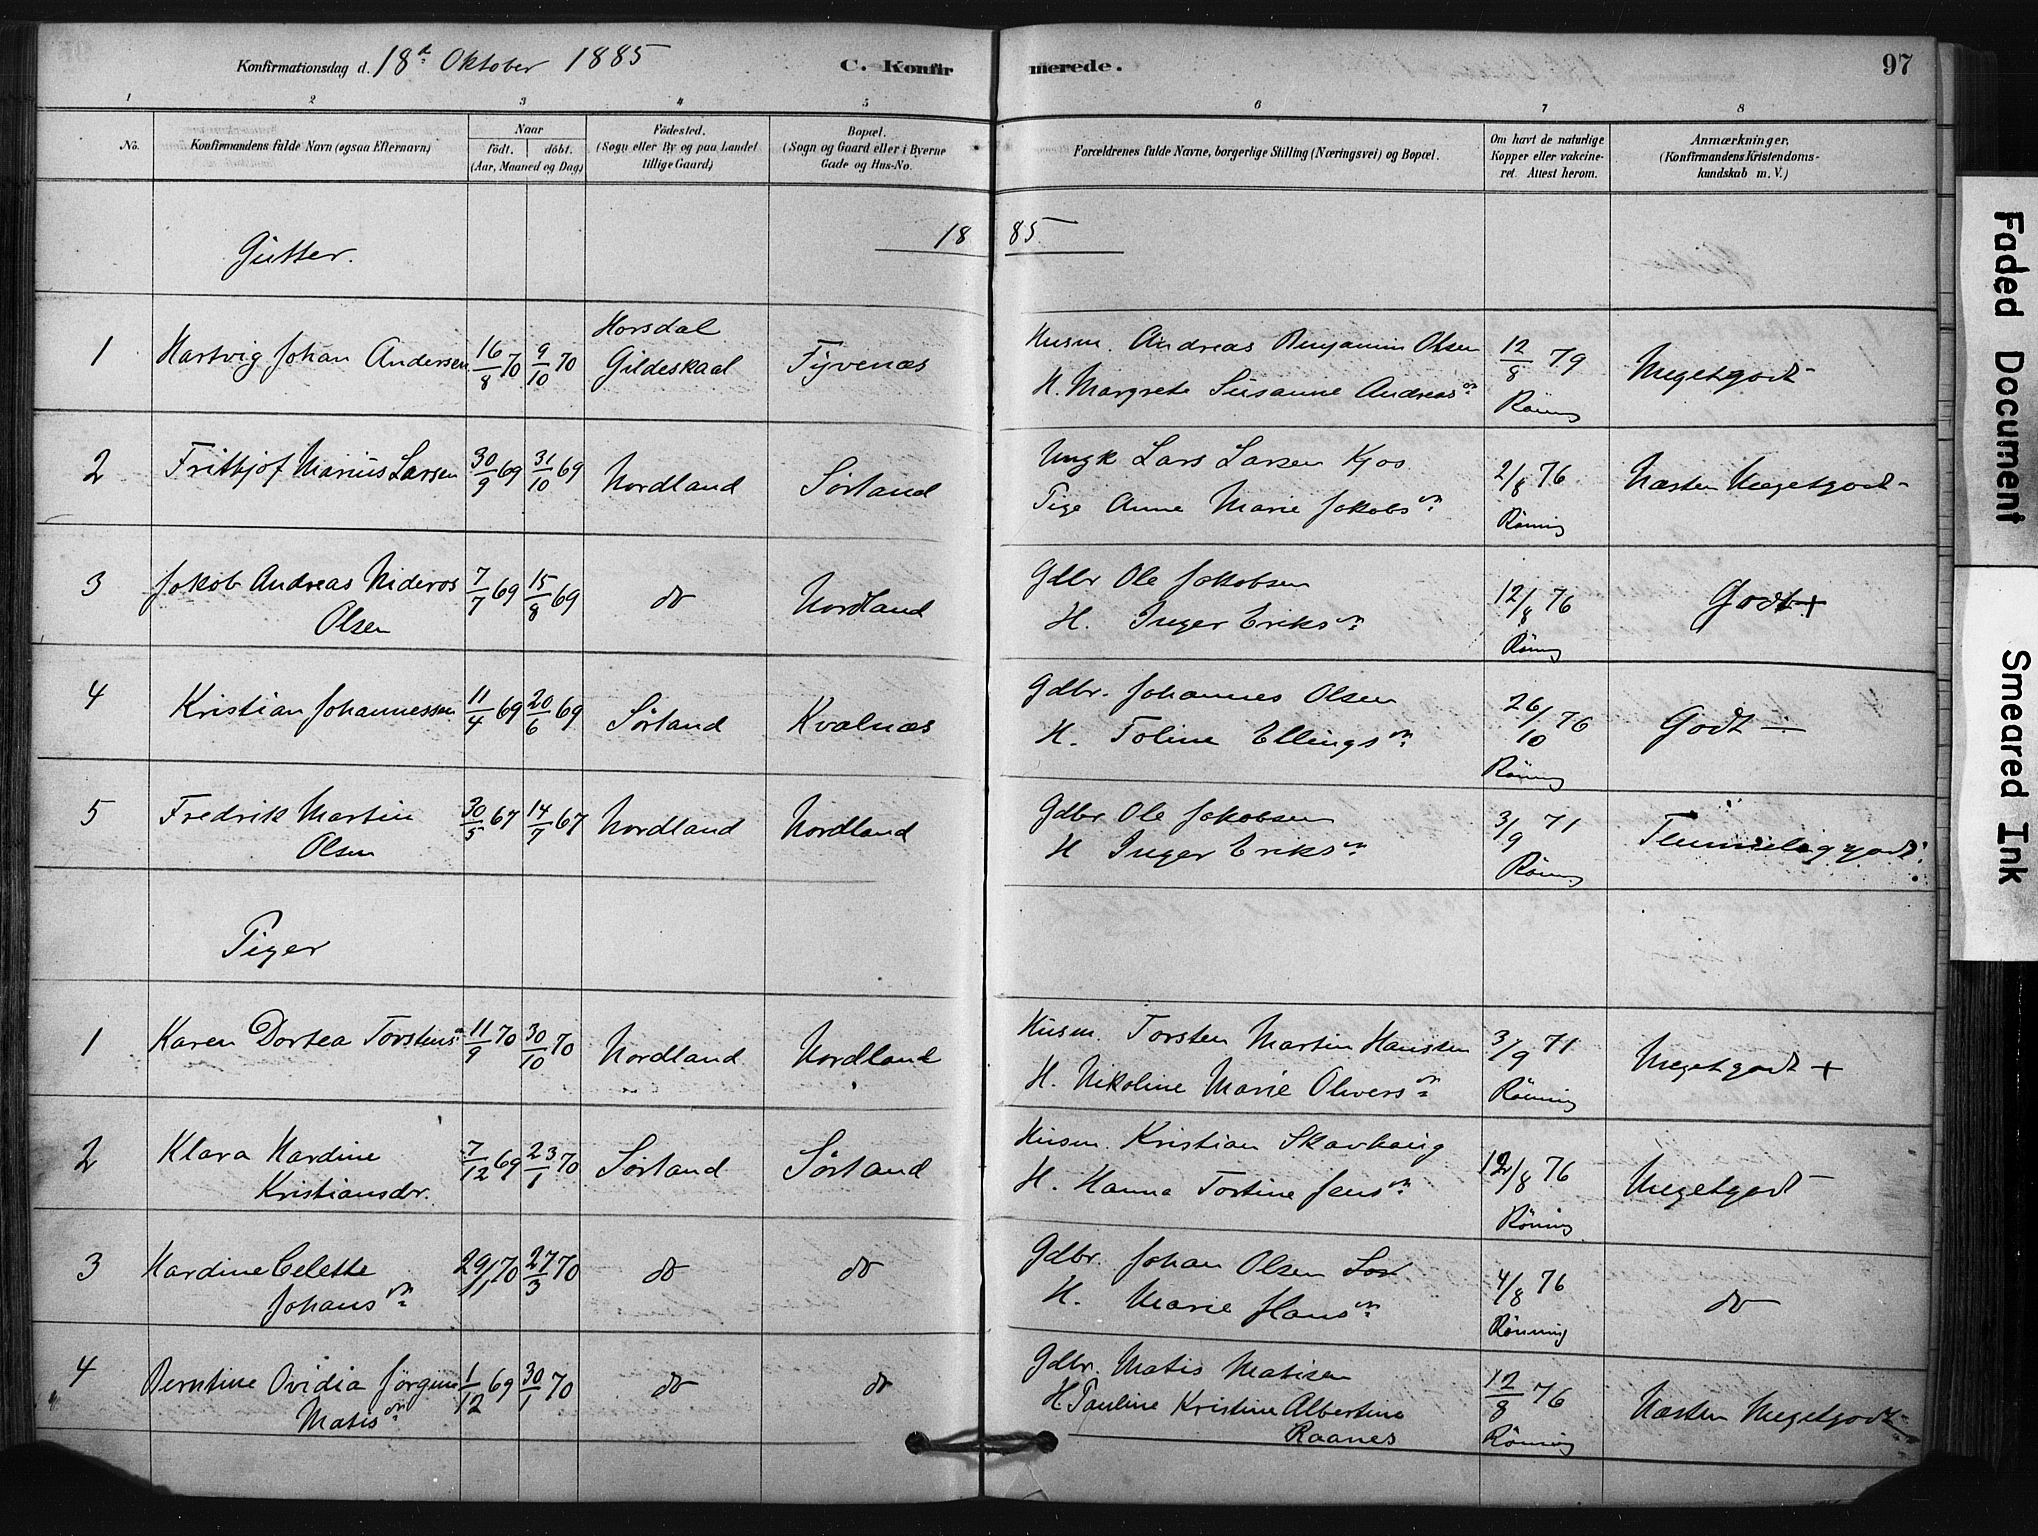 Konfirmationsdag d. 18d Oktober 1885
C. Konfirmerede.
97
1 2 3 4 5 6 7 8
No.
Konfirmandens fulde Navn (ogsaa Efternavn)
Naar
födt. döbt.
(Aar, Maaned og Dag)
Födested.
(Sogn eller By og paa Landet
tillige Gaard)
Bopæl.
(Sogn og Gaard eller i Byerne
Gade og Hus-No.
Forældrenes fulde Navne, borgerlige Stilling (Næringsvei) og Bopæl.
Om havt de naturlige
Kopper eller vakcine-
ret. Attest herom.
Anmærkninger.
(Konfirmandens Kristendoms-
kundskab m. V.)
1885
Gutter.
1 Hartvig Johan Andersen 16/8 70 9/10 70 Horsdal
Gildeskaal Tyvenæs Husm. Andreas Benjamin Olsen
H. Margrete Susanne Andreasdn 12/8 79
Röning Megetgodt
2 Fritbjof Marius Larsen 30/9 69 31/10 69 Nordland Sörland Ungk Lars Larsen Kjos
Pige Anne Marie Jakobsdn 2/8 76
Röning Næsten Megetgodt
3 Jokob Andreas Nideros
Olsen 7/7 69 15/8 69 do Nordland Gdbr Ole Jakobsen
H. Inger Eriksdn 12/8 76
Röning Godt +
4 Kristian Johannessen 11/4 69 20/6 69 Sörland Kvalnæs Gdbr. Johannes Olsen
H. Toline Ellingsdn 26/10 76
Röning Godt ÷
5 Fredrik Martin
Olsen 30/5 67 14/7 67 Nordland Nordland Gdbr Ole Jakobsen
H Inger Eriksdn 3/9 71
Röning Temmeliggodt
Piger
1 Karen Dortea Torstensdn 11/9 70 30/10 70 Nordland Nordland Husm. Torsten Martin Hansten
H. Nikoline Marie Oliversdn 3/9 71
Röning Megetgodt +
2 Klara Hardine
Kristiansdr. 7/12 69 23/1 70 Sörland Sörland Husm. Kristian Skavhaug
H. Hanna Tortine Jensdn 12/8 76
Röning Megetgodt
3 Hardine Celette
Johansdn 29/1 70 27/3 70 do do Gdbr. Johan Olsen
H. Marie Hansdn 4/8 76
Rönning do
4 Berntine Ovidia Jörgine
Matisdn 1/12 69 30/1 70 do do Gdbr. Matis Matisen
H Pauline Kristine Albertine
Raanes 12/8 76
Röning Næsten Megetgodt
Faded Document
Smeared Ink